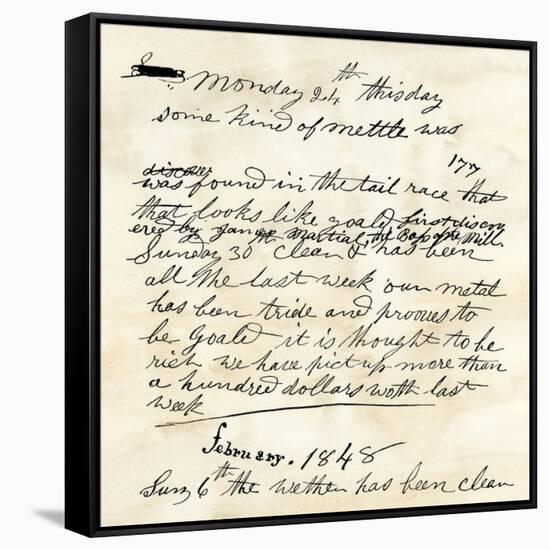 Monday 24th this day
some kind of mettle was
177
discover
was found in the tail race that
that looks like goald, first discov
ered by James Martial, the Boss of the Mill.
Sunday 30th clean & has been
all the last week our metal
has been tride and prooves to
be goald it is thought to be
rich we have pict up more than
a hundred dollars woth last
week
February. 1848
Sun 6th the wether has been clean